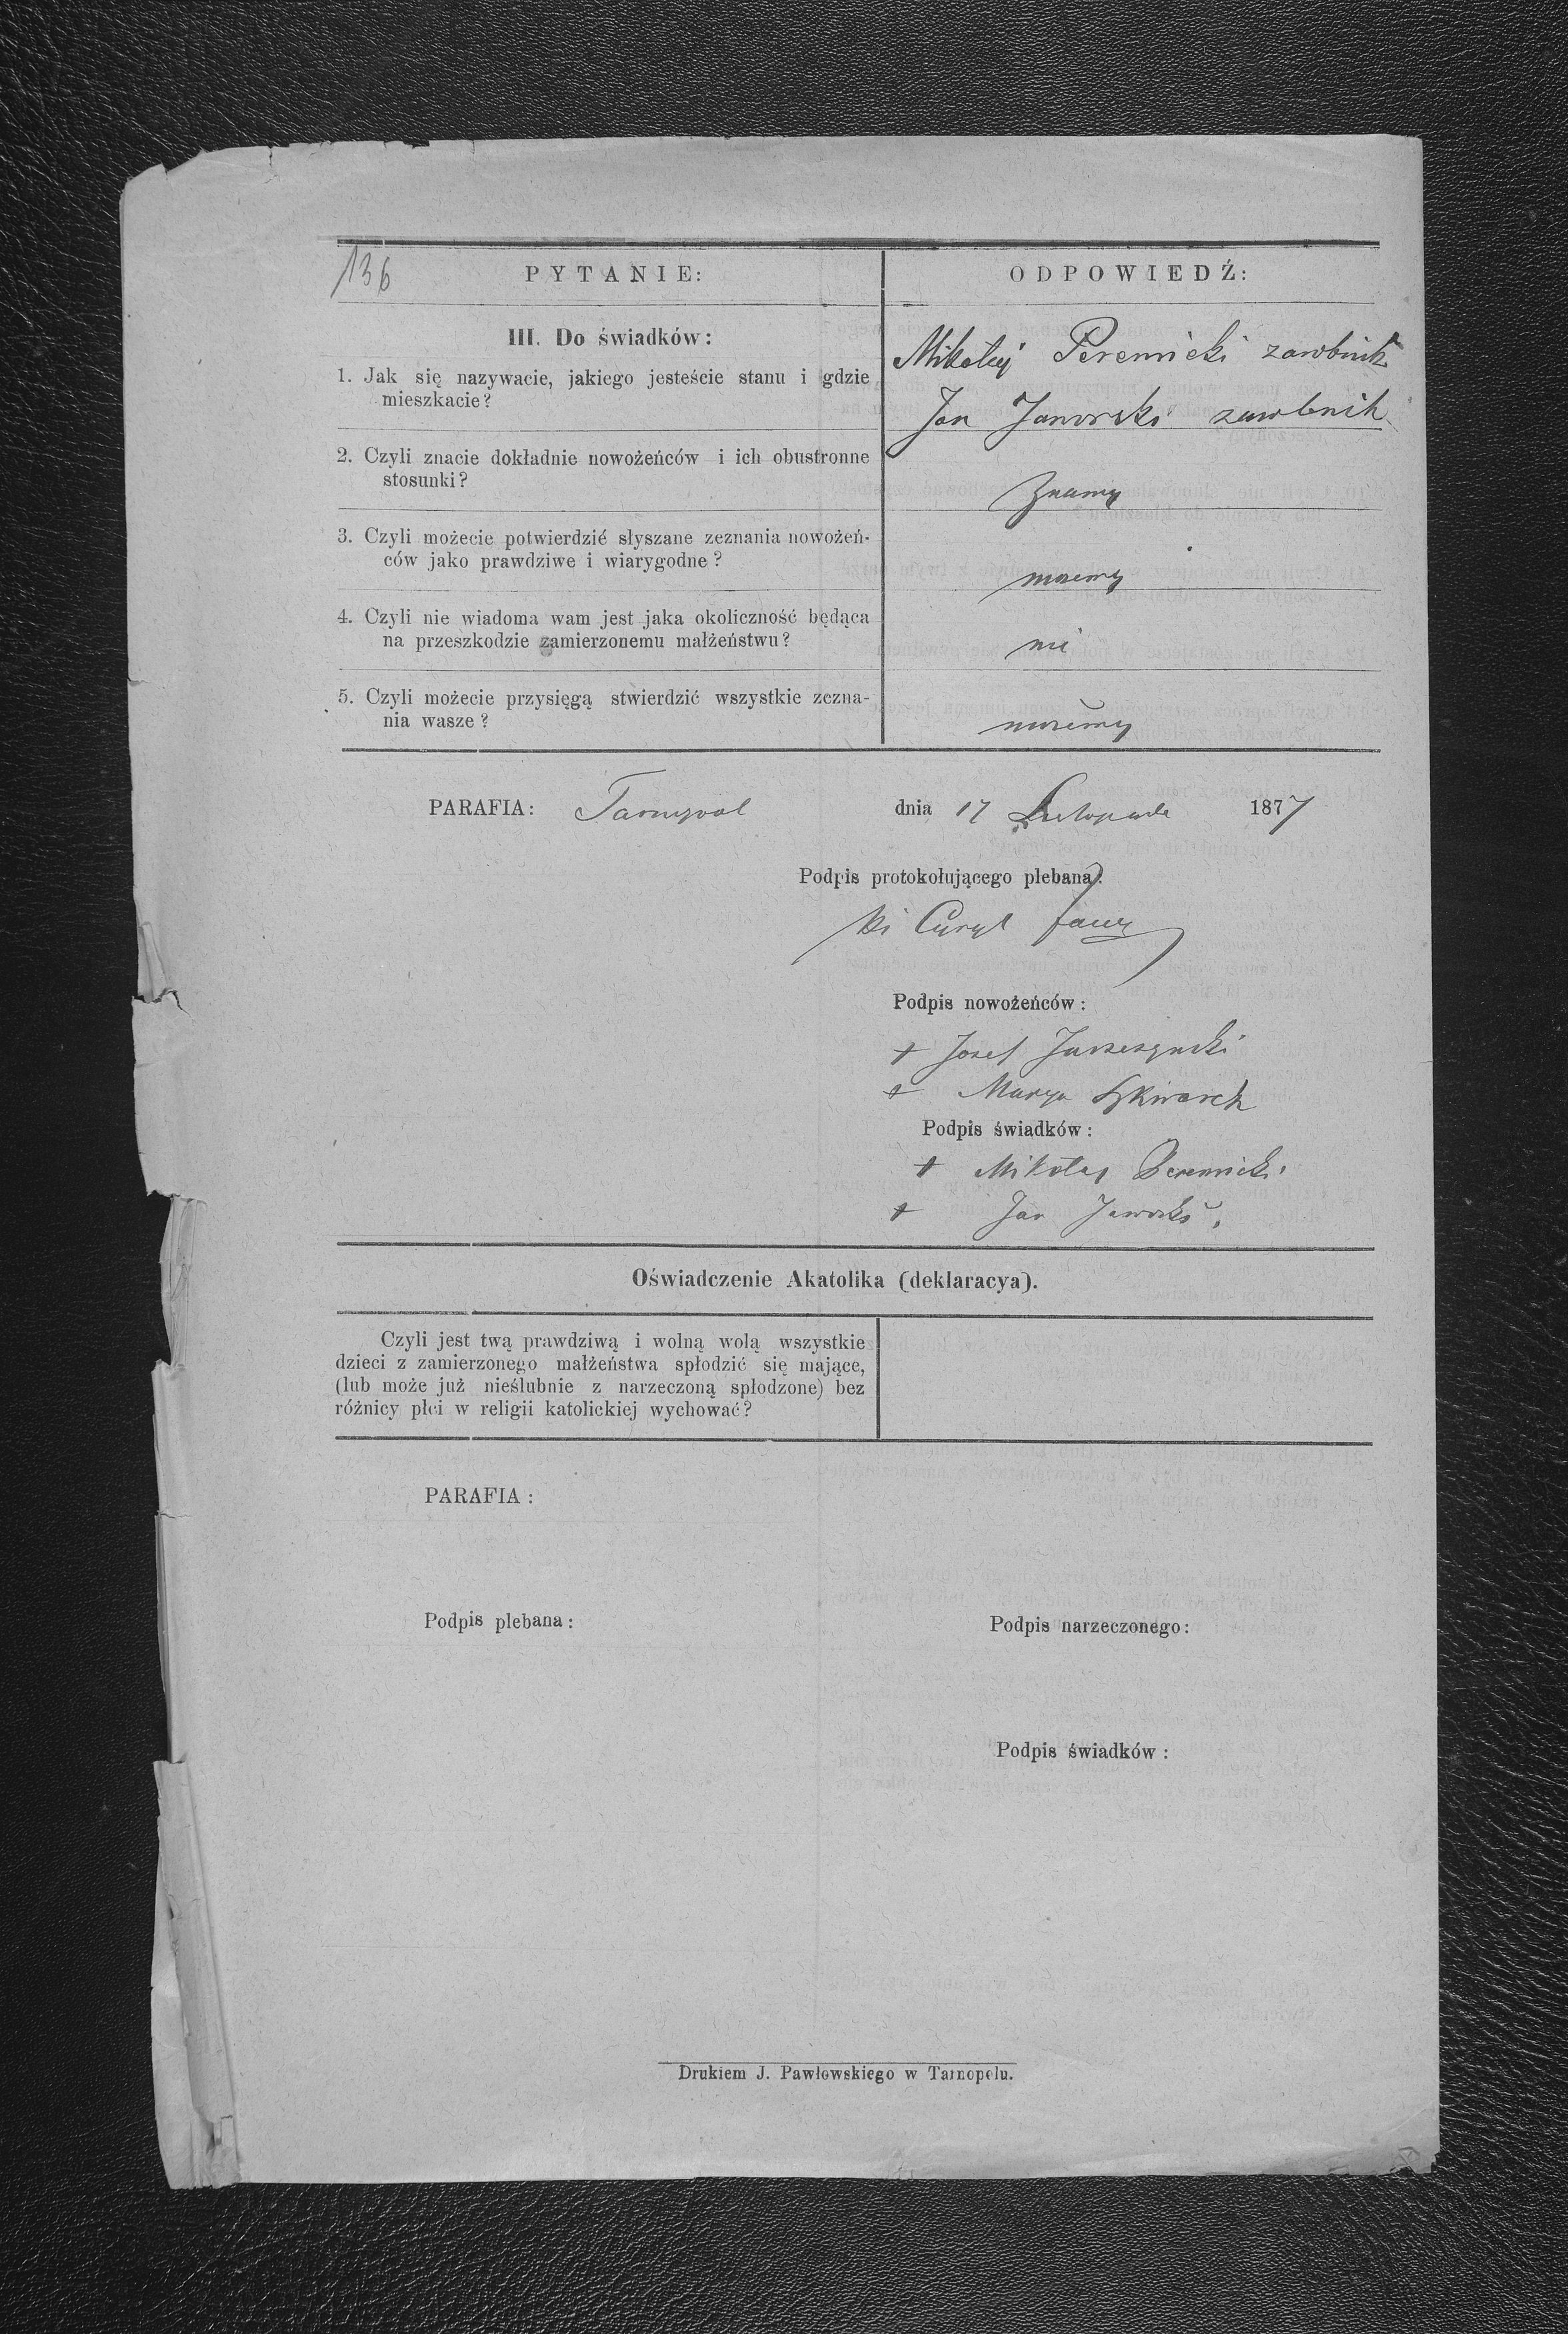 136
PYTANIE:
ODPOWIEDŹ:
III. Do świadków:
1. Jak się nazywacie, jakiego jesteście stanu i gdzie
mieszkacie?
Mikołaj Peremicki zarobnik
Jan Jaworski zarobnik
2. Czyli znacie dokładnie nowożeńców i ich obustronne
stosunki?
Znamy
3. Czyli możecie potwierdzić słyszane zeznania nowożeń-
ców jako prawdziwe i wiarygodne?
możemy
4. Czyli nie wiadoma wam jest jaka okoliczność będąca
na przeszkodzie zamierzonemu małżeństwu?
nie
5. Czyli możecie przysięgą stwierdzić wszystkie zezna-
nia wasze?
możemy
PARAFIA: Tarnopol dnia 17 Listopada 1877
Podpis protokołującego plebana:
Podpis nowożeńców:
+ Josef
+ Marya
Podpis świadków:
+ Mikołaj Peremicki
+ Jan Jaworski
Oświadczenie Akatolika (deklaracya).
Czyli jest twą prawdziwą i wolną wolą wszystkie
dzieci z zamierzonego małżeństwa spłodzić się mające,
(lub może już nieślubnie z narzeczoną spłodzone) bez
różnicy płci w religii katolickiej wychować?
PARAFIA:
Podpis plebana:
Podpis narzeczonego:
Podpis świadków:
Drukiem J. Pawłowskiego w Tarnopolu.